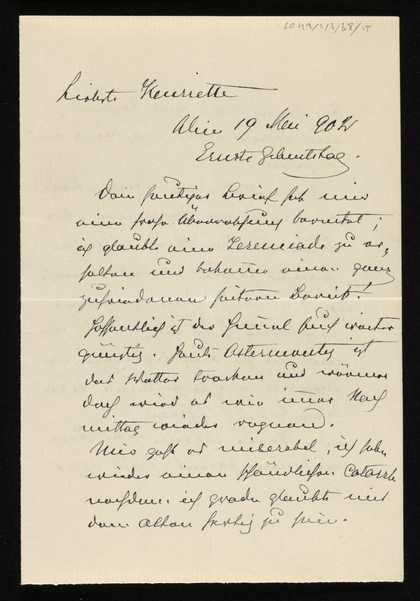 Liebste Henriette
Wien 19 Mai 902
Ernsts Geburtstag.
Dein heutiger Brief hat mir
eine große Überraschung bereitet;
ich glaubte eine Jeremiade zu er¬
halten und bekam einen ganz
zufriedenen heitern Bericht.
Hoffentlich ist der Himmel Euch weiter
günstig. Heute Ostermontag ist
das Wetter trocken und wärmer
doch wird es wie immer Nach
mittag wieder regnen.
Mir geht es miserabel, ich habe
wieder einen schändlichen Catarrh
nachdem ich grade glaubte mit
dem alten fertig zu sein.